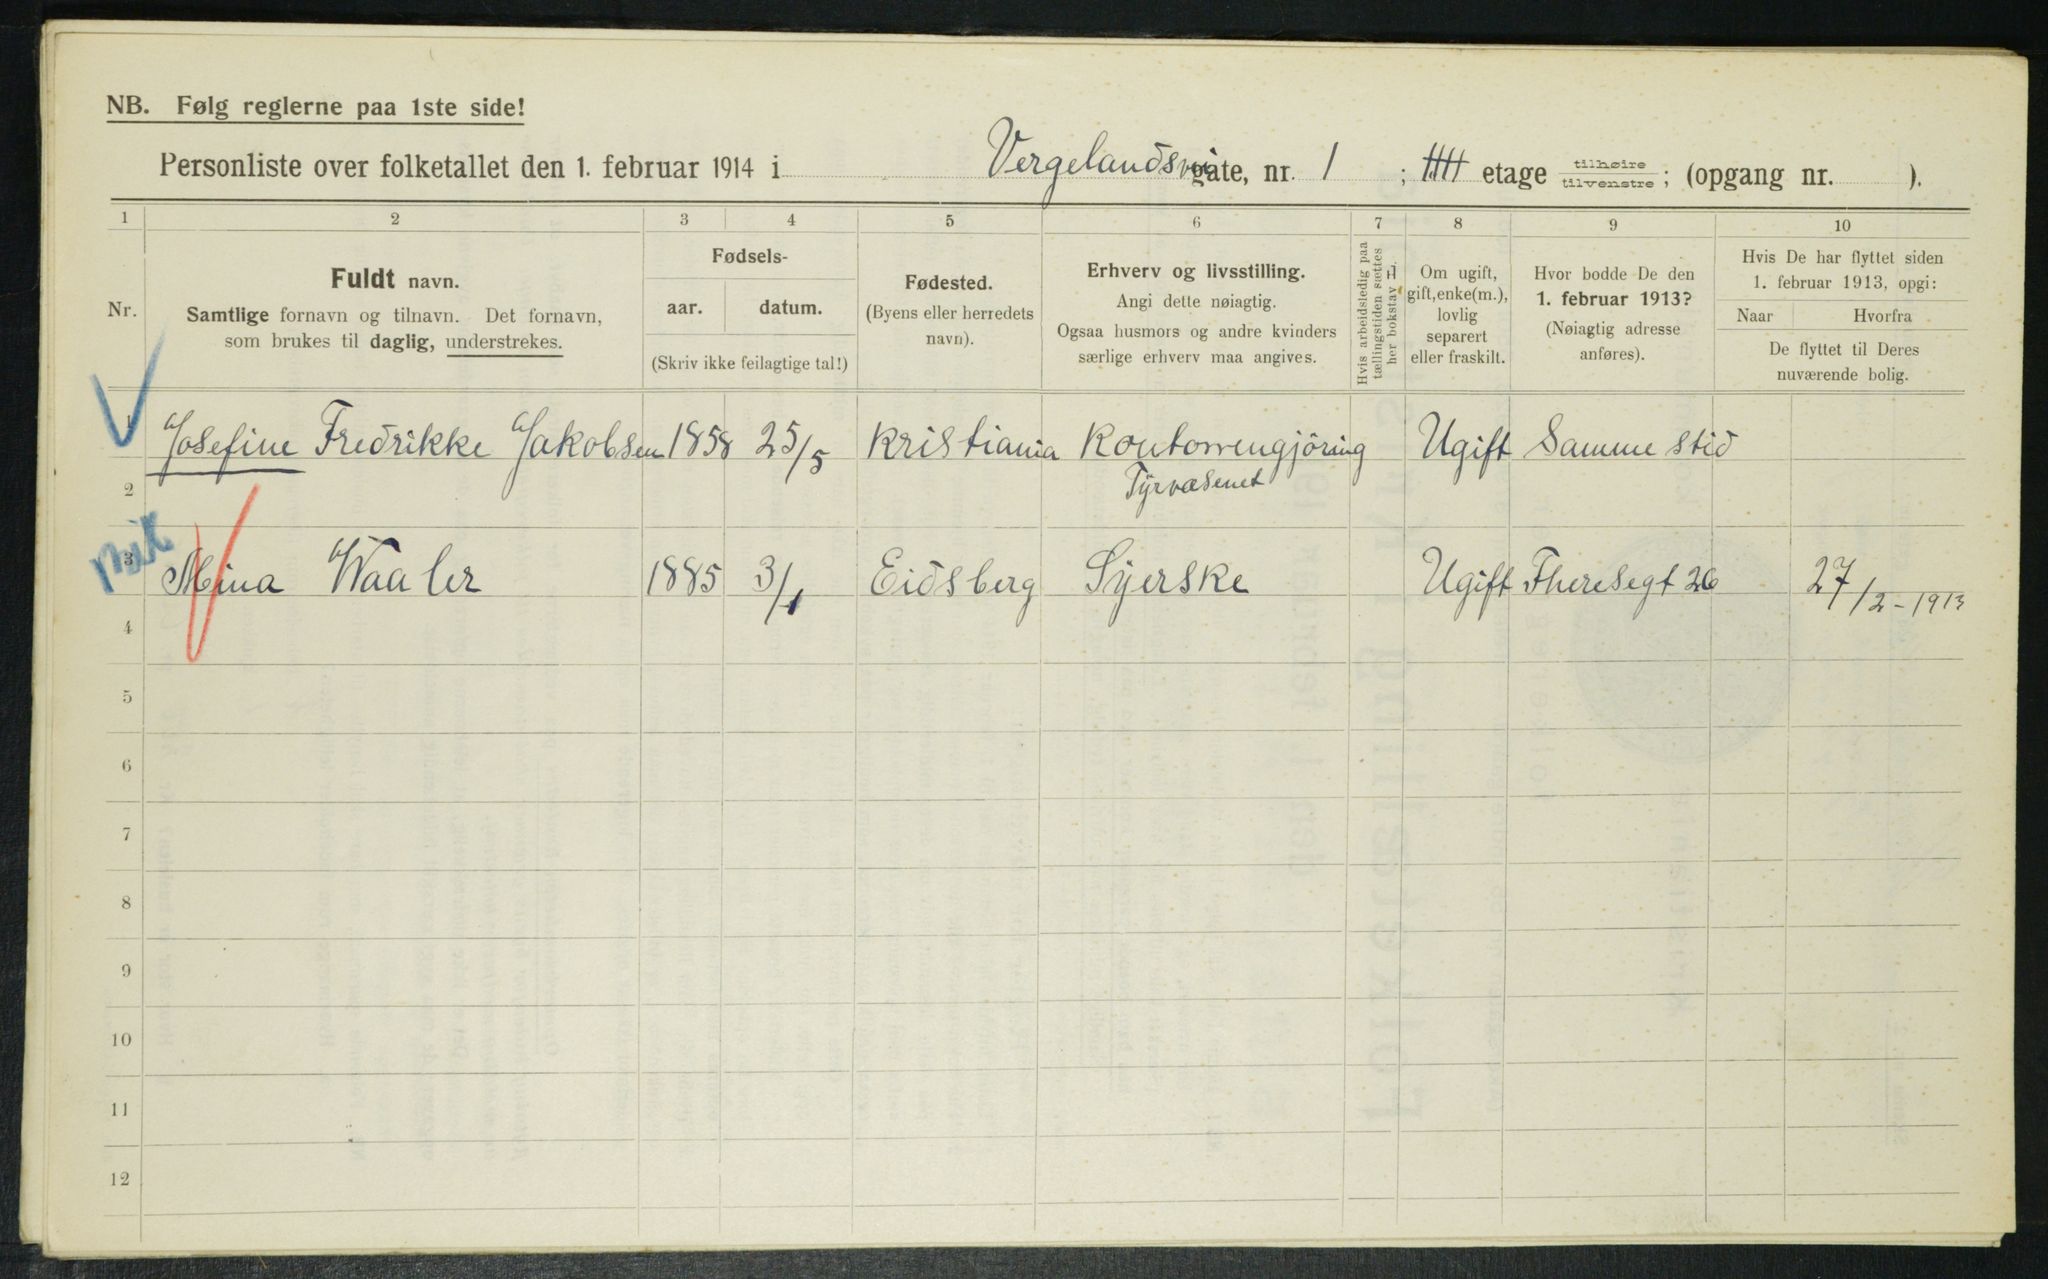 NB. Følg reglerne paa 1ste side!
Personliste over folketallet den 1. februar 1914 i Vergelandsvei gate, nr. 1 ; etage tilhøire tilvenstre ; (opgang nr. ).
1 2 3 4 5 6 7 8 9 10
Nr.
Fuldt navn.
Samtlige fornavn og tilnavn. Det fornavn,
som brukes til daglig, understrekes.
Fødsels-
aar. datum.
(Skriv ikke feilagtige tal!)
Fødested.
(Byens eller herredets
navn).
Erhverv og livsstilling.
Angi dette nøiagtig.
Ogsaa husmors og andre kvinders
særlige erhverv maa angives.
Hvis arbeidsledig paa
tællingstiden sættes
her bokstav L.
Om ugift,
gift, enke(m.),
lovlig
separert
eller fraskilt.
Hvor bodde De den
1. februar 1913?
(Nøiagtig adresse
anføres).
Hvis De har flyttet siden
1. februar 1913, opgi:
Naar Hvorfra
De flyttet til Deres
nuværende bolig.
1 Josefine Fredrikke Jakobsen 1858 25/5 Kristiania Kontorrengjöring Ugift Samme sted
2 Fyrvæsenet
3 Mina Waaler 1885 3/1 Eidsberg Syerske Ugift Theresegt 26 27/2-1913
4
5
6
7
8
9
10
11
12